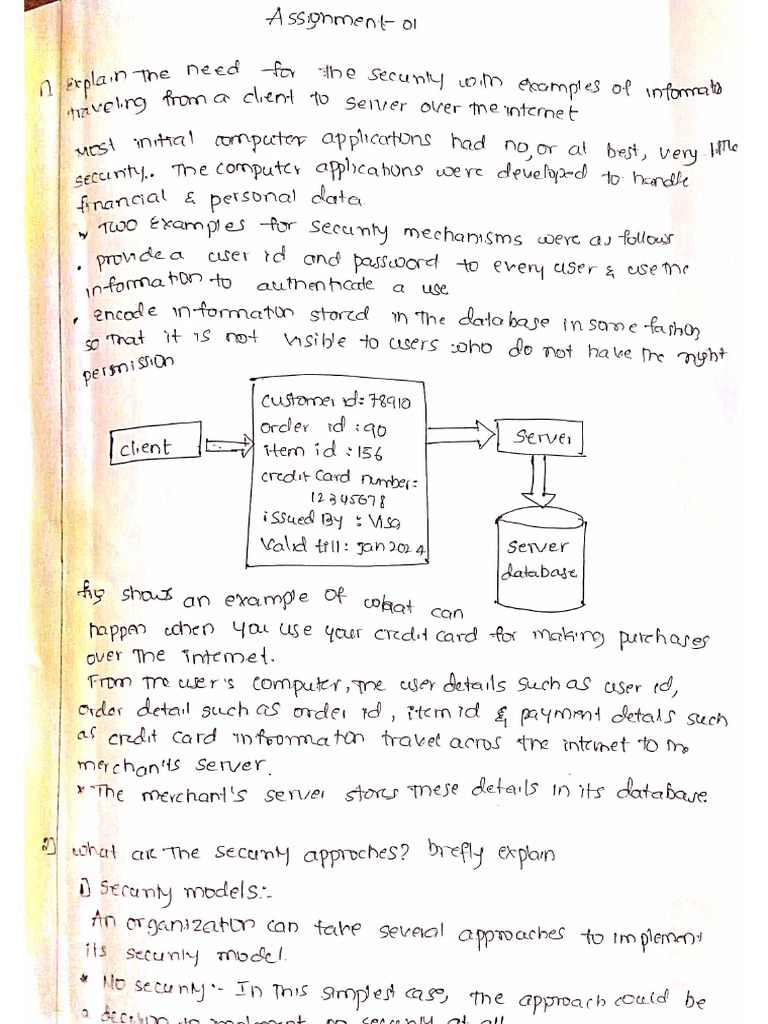 Assignment-01
1) Explain the need for the security with examples of informato
traveling from a client to server over the internet
Most initial computer applications had no, or at best, very little
security.. The computer applications were developed to handle
financial & personal data
* Two examples for security mechanisms were as follows
. provide a user id and password to every user & use the
information to authenticate a use
. encode information stored in the database in some fashion
so that it is not visible to users who do not have the right
permission
client
customer id: 78910
order id : 90
item id : 156
credit card number:
12345678
issued By : Visa
Valid till: Jan 2024
server
server
database
fig shows an example of what can
happen when you use your credit card for making purchases
over the internet.
From the user's computer, the user details such as user id,
order detail such as order id, item id & payment details such
as credit card infoormation travel acros the internet to the
merchants server.
* The merchant's server stores these details in its database
2) what are the security approches? briefly explain
1) security models:-
An organization can take several approaches to implement
its security model.
* No security:- In this simplest case, the approach could be
a decision to implement no security at all